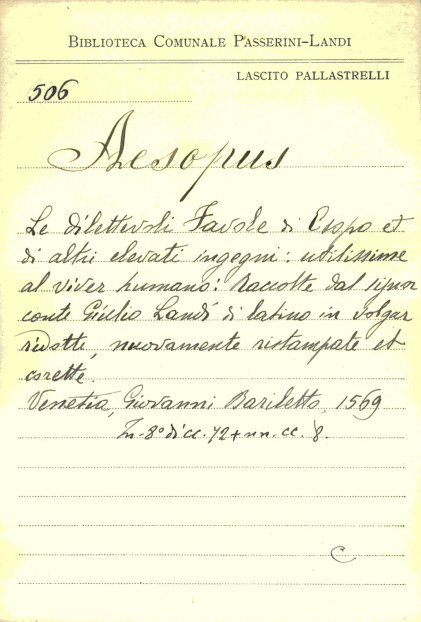 BIBLIOTECA COMUNALE PASSERINI-LANDI
LASCITO PALLASTRELLI
506
Aesopus
Le dilettevoli Favole di Esopo et
di altri elevati ingegni: utilissime
al viver humano: Raccolte dal signor
conte Giulio Landi di latino in volgar
ridotte, nuovamente ristampate et
corette.
Venetia, Giovanni Bariletto, 1569
In-8° di cc. 72 + nn. cc. 8.
C